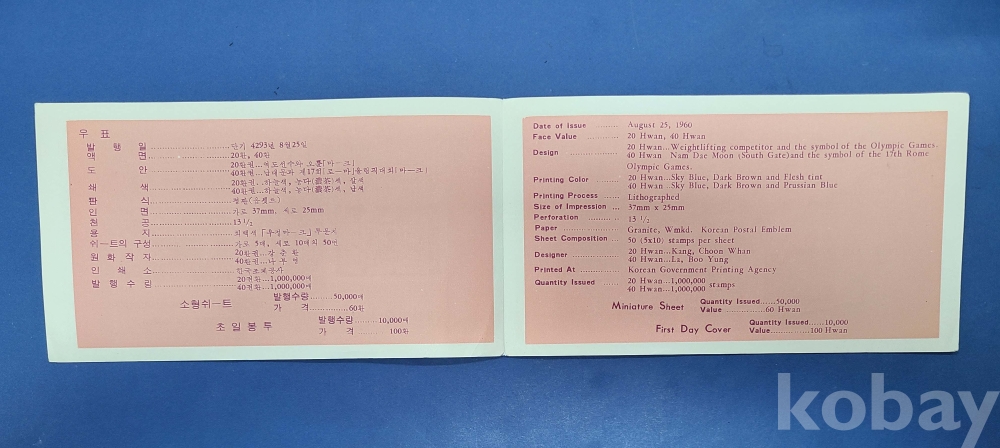 우 표
발 행 일 ........ 단기 4293년 8월25일
액 면 ........ 20환, 40환
도 안 ........ 20환권...역도선수와 오륜「마ー크」
40환권...남대문과 제17회「로ー마」올림픽대회「마ー크」
채 색 ........ 20환권...하늘색, 농다(濃茶)색, 살색
40환권...하늘색, 농다(濃茶)색, 남색
판 식 ........ 평판(옵셋트)
인 면 ........ 가로 37mm, 세로 25mm
천 공 ........ 13 1/2
용 지 ........ 「우정마ー크」
쉬ー트의 구성 ........ 가로 5매, 세로 10매의 50매
원 화 작 자 ........ 20환권...강 춘 환
40환권...나 부 영
인 쇄 소 ........ 한국조폐공사
발 행 수 량 ........ 20환권...1,000,000매
40환권...1,000,000매
소형쉬ー트 발행수량......50,000매
가 격......60환
초 일 봉 투 발행수량......10,000매
가 격......100환
Date of Issue ........ August 25, 1960
Face Value ........ 20 Hwan, 40 Hwan
Design ........ 20 Hwan...Weightlifting competitor and the symbol of the Olympic Games.
40 Hwan Nam Dae Moon (South Gate)and the symbol of the 17th Rome
Olympic Games.
Printing Color ........ 20 Hwan...Sky Blue, Dark Brown and Flesh tint
40 Hwan...Sky Blue, Dark Brown and Prussian Blue
Printing Process ........ Lithographed
Size of Impression .... 37mm x 25mm
Perforation ........ 13 1/2
Paper ........ Granite, Wmkd. Korean Postal Emblem
Sheet Composition ... 50 (5x10) stamps per sheet
Designer ........ 20 Hwan...Kang, Choon Whan
40 Hwan...La, Boo Yung
Printed At ........ Korean Government Printing Agency
Quantity Issued ...... 20 Hwan...1,000,000 stamps
40 Hwan...1,000,000
Miniature Sheet Quantity Issued.....50,000
Value ..............60 Hwan
First Day Cover Quantity Issued......10,000
Value.............100 Hwan
kobay